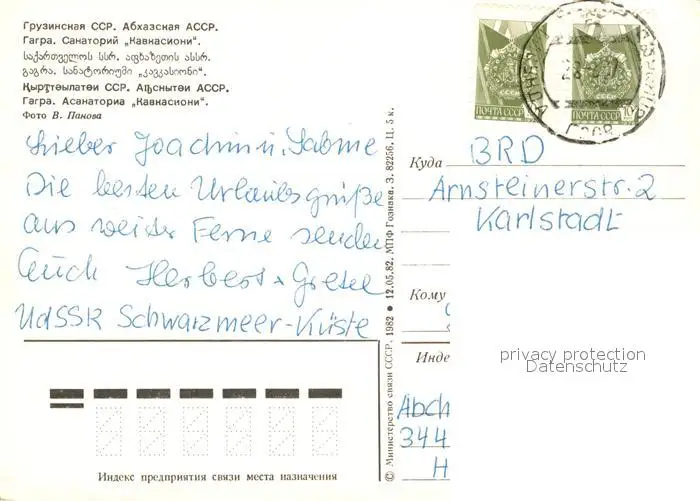 Грузинская ССР. Абхазская АССР.
Гагра. Санаторий „Кавкасиони“.
საქართველოს სსრ. აფხაზეთის ასსრ.
გაგრა. სანატორიუმი „კავკასიონი“.
Қырҭтәылатәи ССР. Аҧснытәи АССР.
Гагра. Асанаториа „Кавкасиони“.
Фото В. Панова
Lieber Joachim u. Sabine
Die besten Urlaubsgrüße
aus weiter Ferne senden
Euch Herbert + Gretel
UdSSR Schwarzmeer-Küste
Индекс предприятия связи места назначения
© Министерство связи СССР, 1982 • 12.05.82. МПФ Гознака. З. 82256, Ц. 5 к.
ПОЧТА СССР
ПОЧТА СССР 10
СССР
Куда BRD
Arnsteinerstr. 2
Karlstadt
Кому
privacy protection
Datenschutz
Инде
Abch
344
H